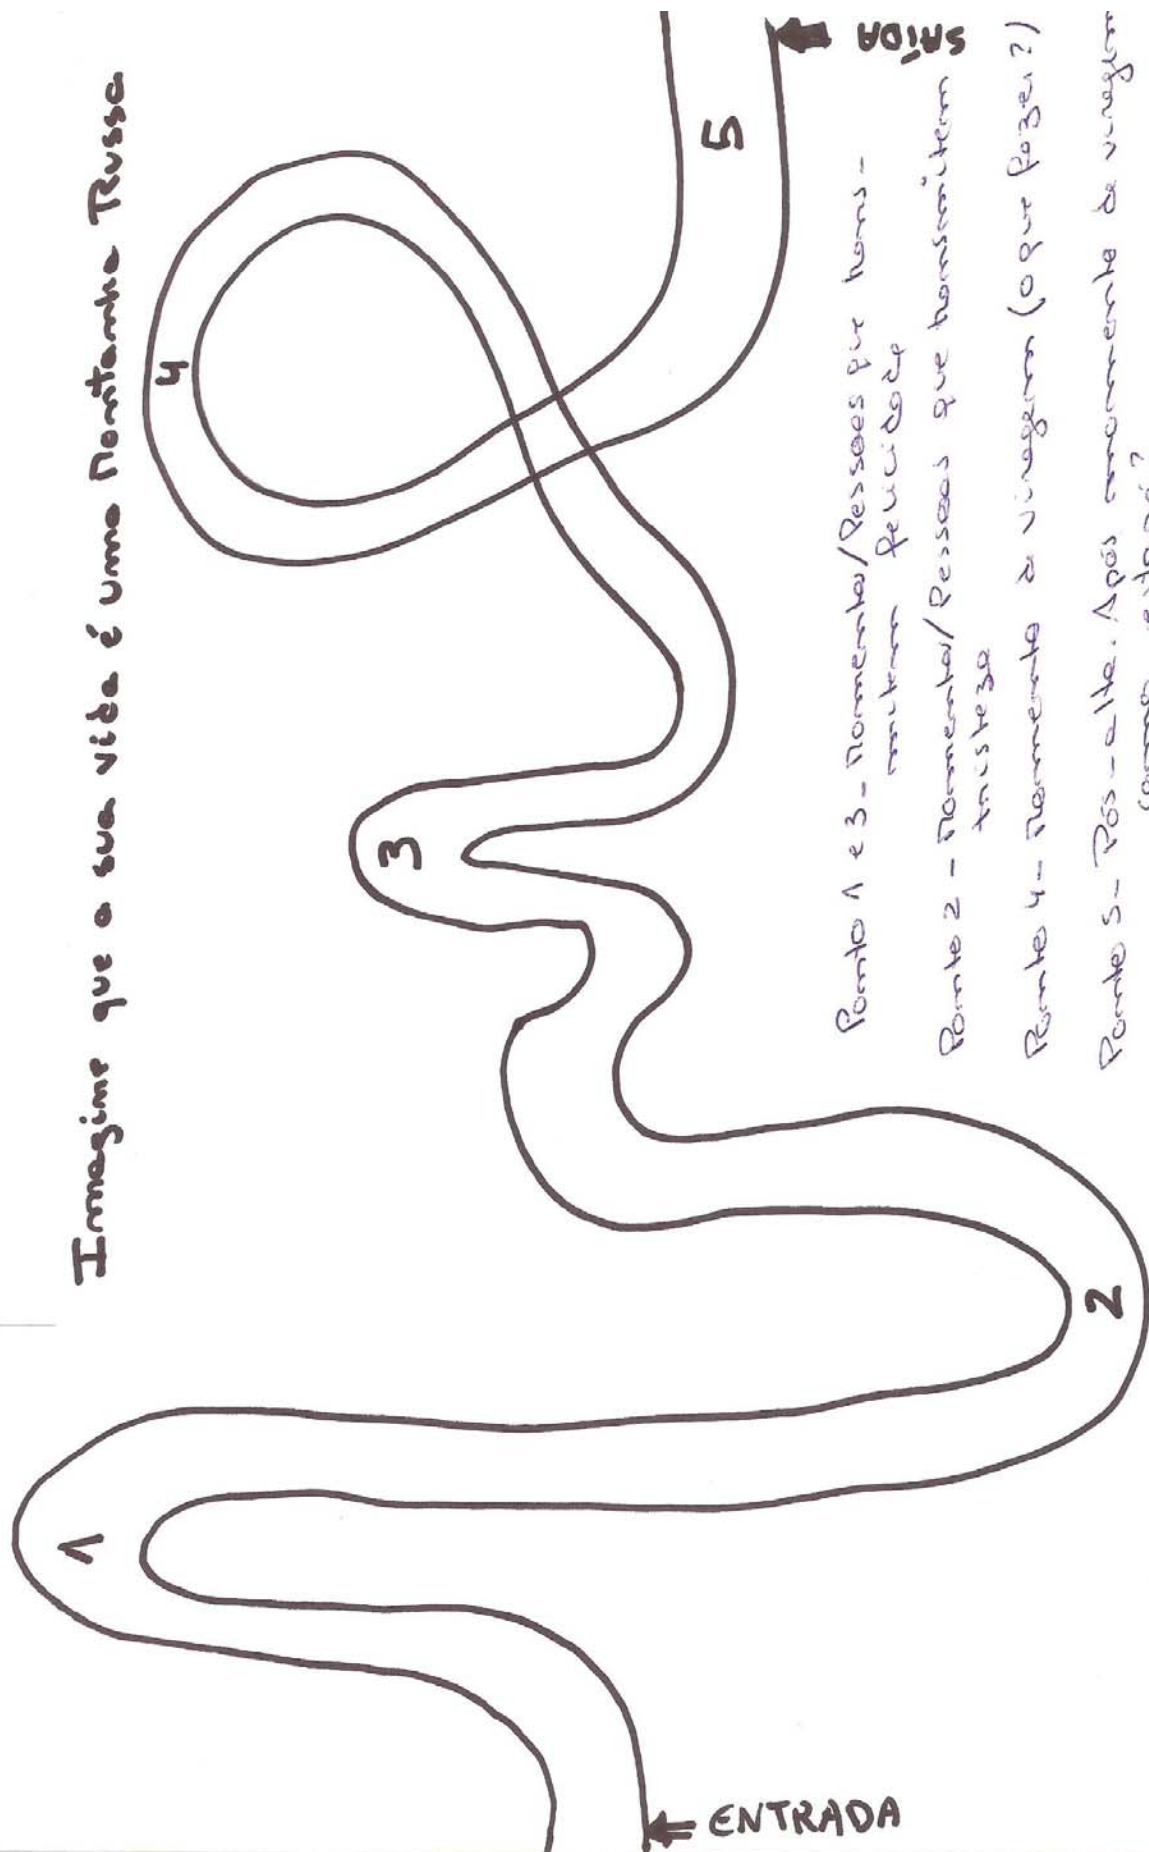 Imagine que a sua vida é uma Montanha Russa
1
2
3
4
5
ENTRADA
SAÍDA
Ponto 1 e 3 - Momentos/Pessoas que trans-
mitem felicidade
Ponto 2 - Momentos/Pessoas que transmitem
tristeza
Ponto 4 - Momento de viragem (o que fazer?)
Ponto 5 - Pós-alta. Após momento de viragem
como